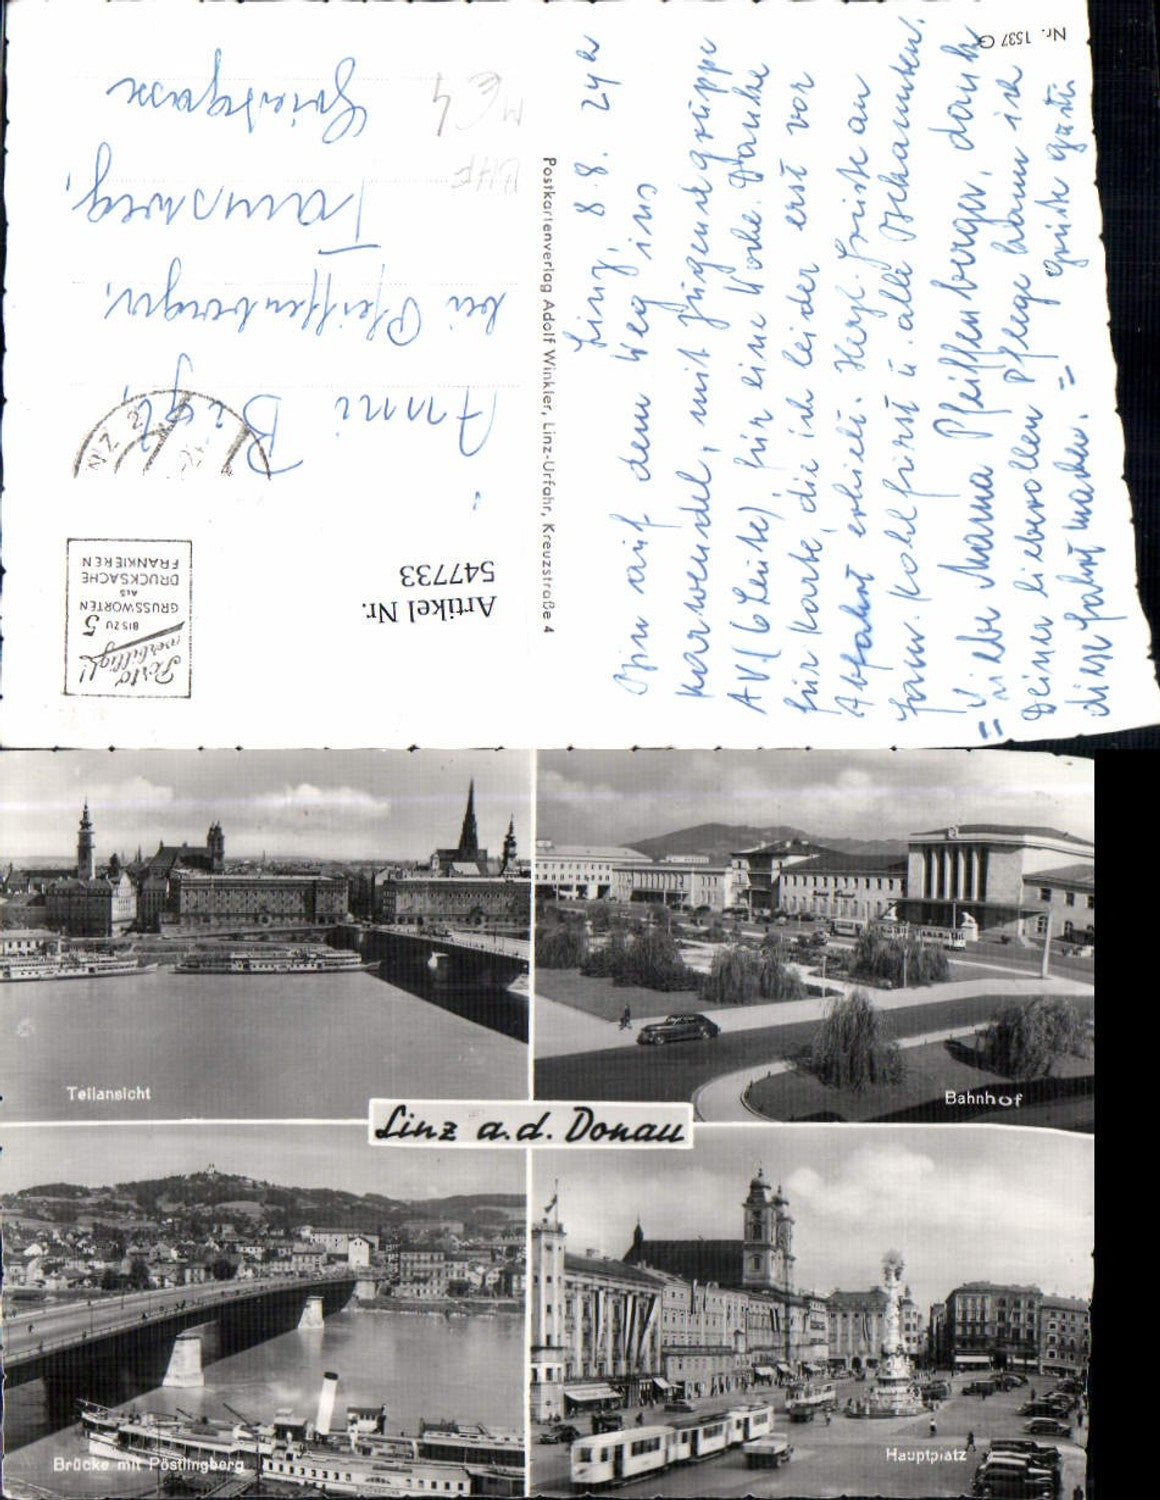 Nr. 1537 G
Linz, 8.8. 24h
Bin auf dem Weg ins
Karwendel, mit Jugendgruppe
AV (6 Leute), für eine Woche. Danke
für Karte, die ich leider erst vor
Abfahrt erhielt. Herzl. Grüße an
Fam. Kohlfürst u. alle Bekannten.
= Liebe Mama Pfeiffenberger, dank
Deiner liebevollen Pflege kann ich
diese Fahrt machen. = Grüße
Postkartenverlag Adolf Winkler, Linz-Urfahr, Kreuzstraße 4
Porto verbilligt!
BIS ZU 5
GRUSSWORTEN
ALS
DRUCKSACHE
FRANKIEREN
Artikel Nr.
547733
Anni
bei Pfeiffenberger,
Tamsweg,
Griesgasse
Teilansicht
Bahnhof
Linz a.d. Donau
Brücke mit Pöstlingberg
Hauptplatz